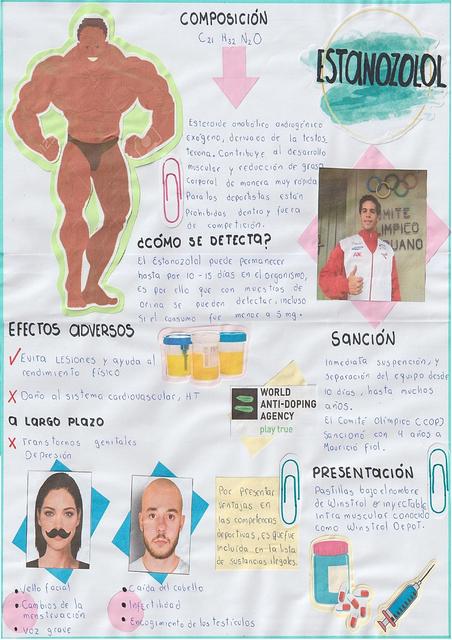 COMPOSICIÓN
C21 H32 N2O
ESTANOZOLOL
Esteroide anabólico androgénico
exógeno, derivado de la testos
terona. Contribuye al desarrollo
muscular y reducción de grasa
corporal de manera muy rápida.
Para los deportistas están
Prohibidas dentro y fuera
de competición.
MITE
LIMPICO
RUANO
¿CÓMO SE DETECTA?
El Estanozolol puede permanecer
hasta por 10-15 días en el organismo,
es por ello que con muestras de
orina se pueden detectar, incluso
Si el consumo fue menor a 5 mg.
EFECTOS ADVERSOS
Evita LESIONES y ayuda al
rendimiento físico
Daño al sistema cardiovascular, HT
A LARGO PLAZO
Transtornos genitales
Depresión
WORLD
ANTI-DOPING
AGENCY
play true
SANCIÓN
Inmediata suspención, y
separación del equipo desde
10 días, hasta muchos
años.
El Comité Olímpico (COP)
Sancionó con 4 años a
Mauricio Fiol.
Por presentar
ventajas en
las competencias
deportivas, es que fue
incluida en la lista
de sustancias ilegales.
PRESENTACIÓN
Pastillas bajo el nombre
de Winstrol e inyectable
intramuscular conocido
como Winstrol Depot.
Vello facial
Cambios de la
menstruación
Voz grave
Caída del cabello
Infertilidad
Encogimiento de los testículos